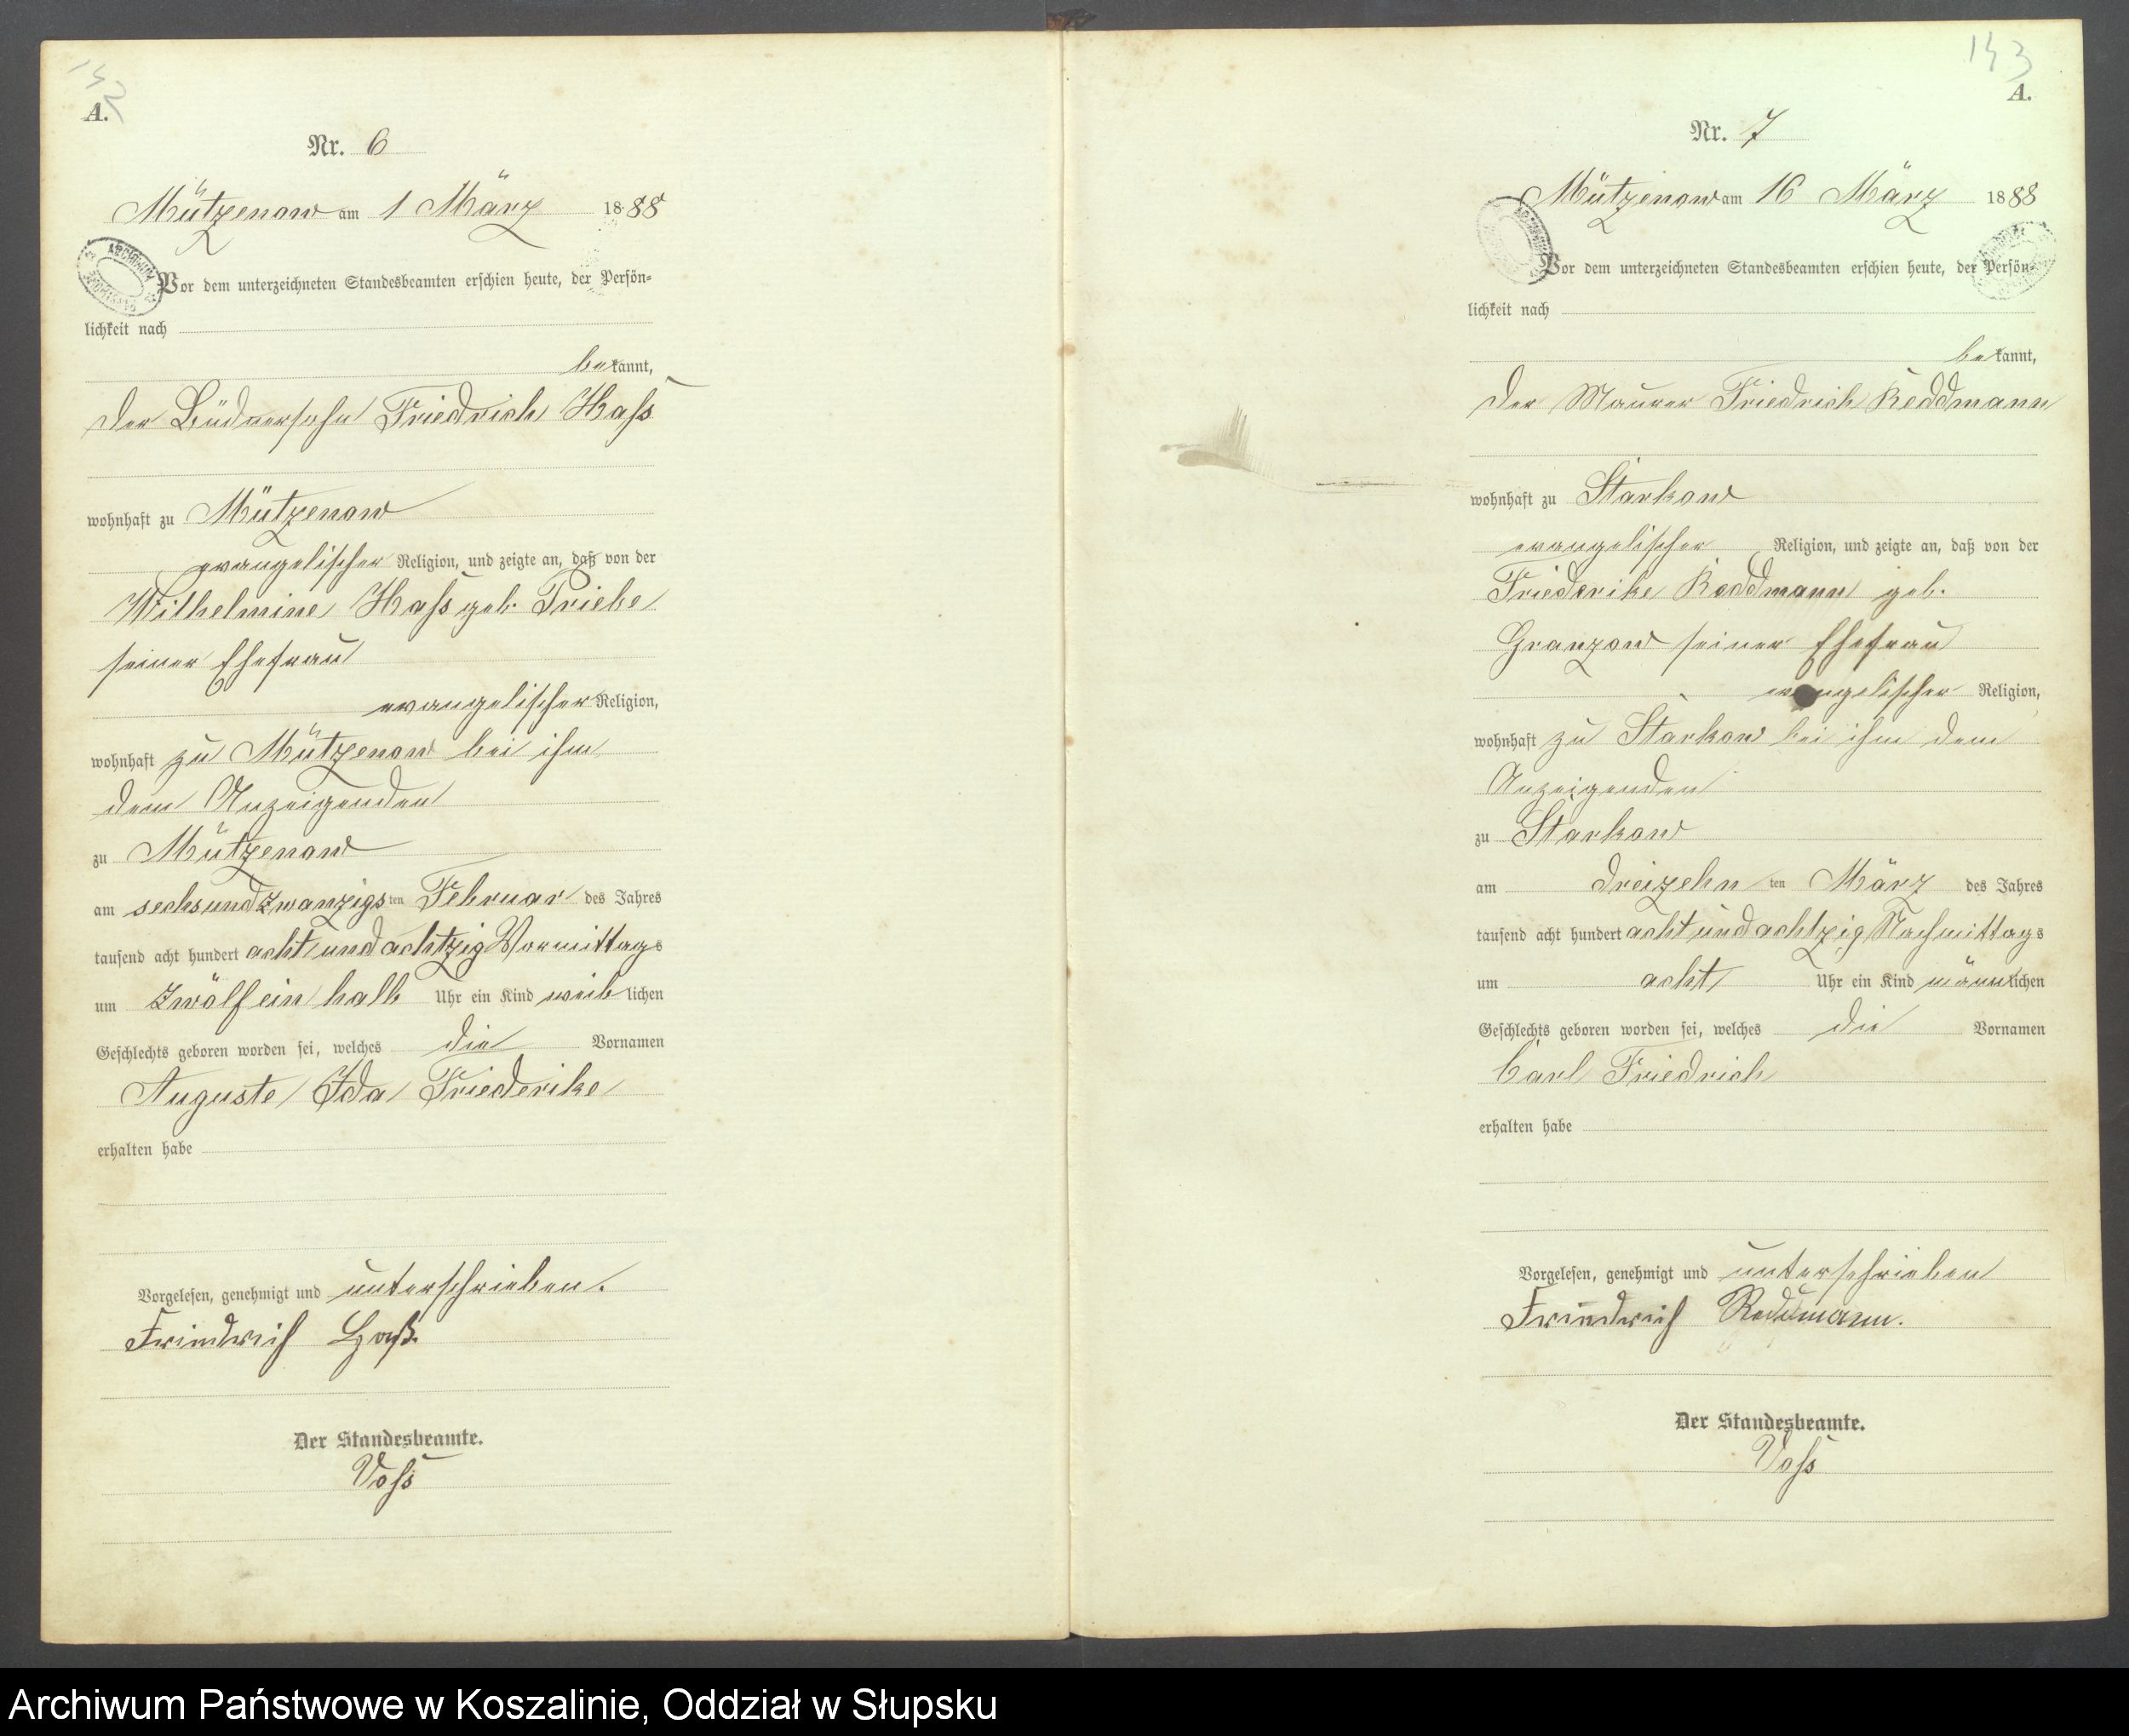 152
A.
Nr. 6
Mützenow am 1 März 1888
ARCHIWUM
Vor dem unterzeichneten Standesbeamten erschien heute, der Persön-
lichkeit nach
bekannt,
der Büdnersohn Friedrich Hass
wohnhaft zu Mützenow
evangelischer Religion, und zeigte an, daß von der
Wilhelmine Hass geb. Priebe
seiner Ehefrau
evangelischer Religion,
wohnhaft zu Mützenow bei ihm
dem Anzeigenden
zu Mützenow
am sechsundzwanzigsten Februar des Jahres
tausend acht hundert acht und achtzig Vormittags
um Zwölf ein halb Uhr ein Kind weiblichen
Geschlechts geboren worden sei, welches die Vornamen
Auguste Ida Friederike
erhalten habe
Vorgelesen, genehmigt und unterschrieben.
Friedrich Haß.
Der Standesbeamte.
Voss
153
A.
Nr. 7
Mützenow am 16 März 1888
Vor dem unterzeichneten Standesbeamten erschien heute, der Persön-
lichkeit nach
bekannt,
der Maurer Friedrich Reddmann
wohnhaft zu Starkow
evangelischer Religion, und zeigte an, daß von der
Friederike Reddmann geb.
Granzow seiner Ehefrau
evangelischer Religion,
wohnhaft zu Starkow bei ihm dem
Anzeigenden
zu Starkow
am dreizehnten März des Jahres
tausend acht hundert acht und achtzig Nachmittags
um acht Uhr ein Kind männlichen
Geschlechts geboren worden sei, welches die Vornamen
Carl Friedrich
erhalten habe
Vorgelesen, genehmigt und unterschrieben
Friedrich Reddmann.
Der Standesbeamte.
Voss
Archiwum Państwowe w Koszalinie, Oddział w Słupsku